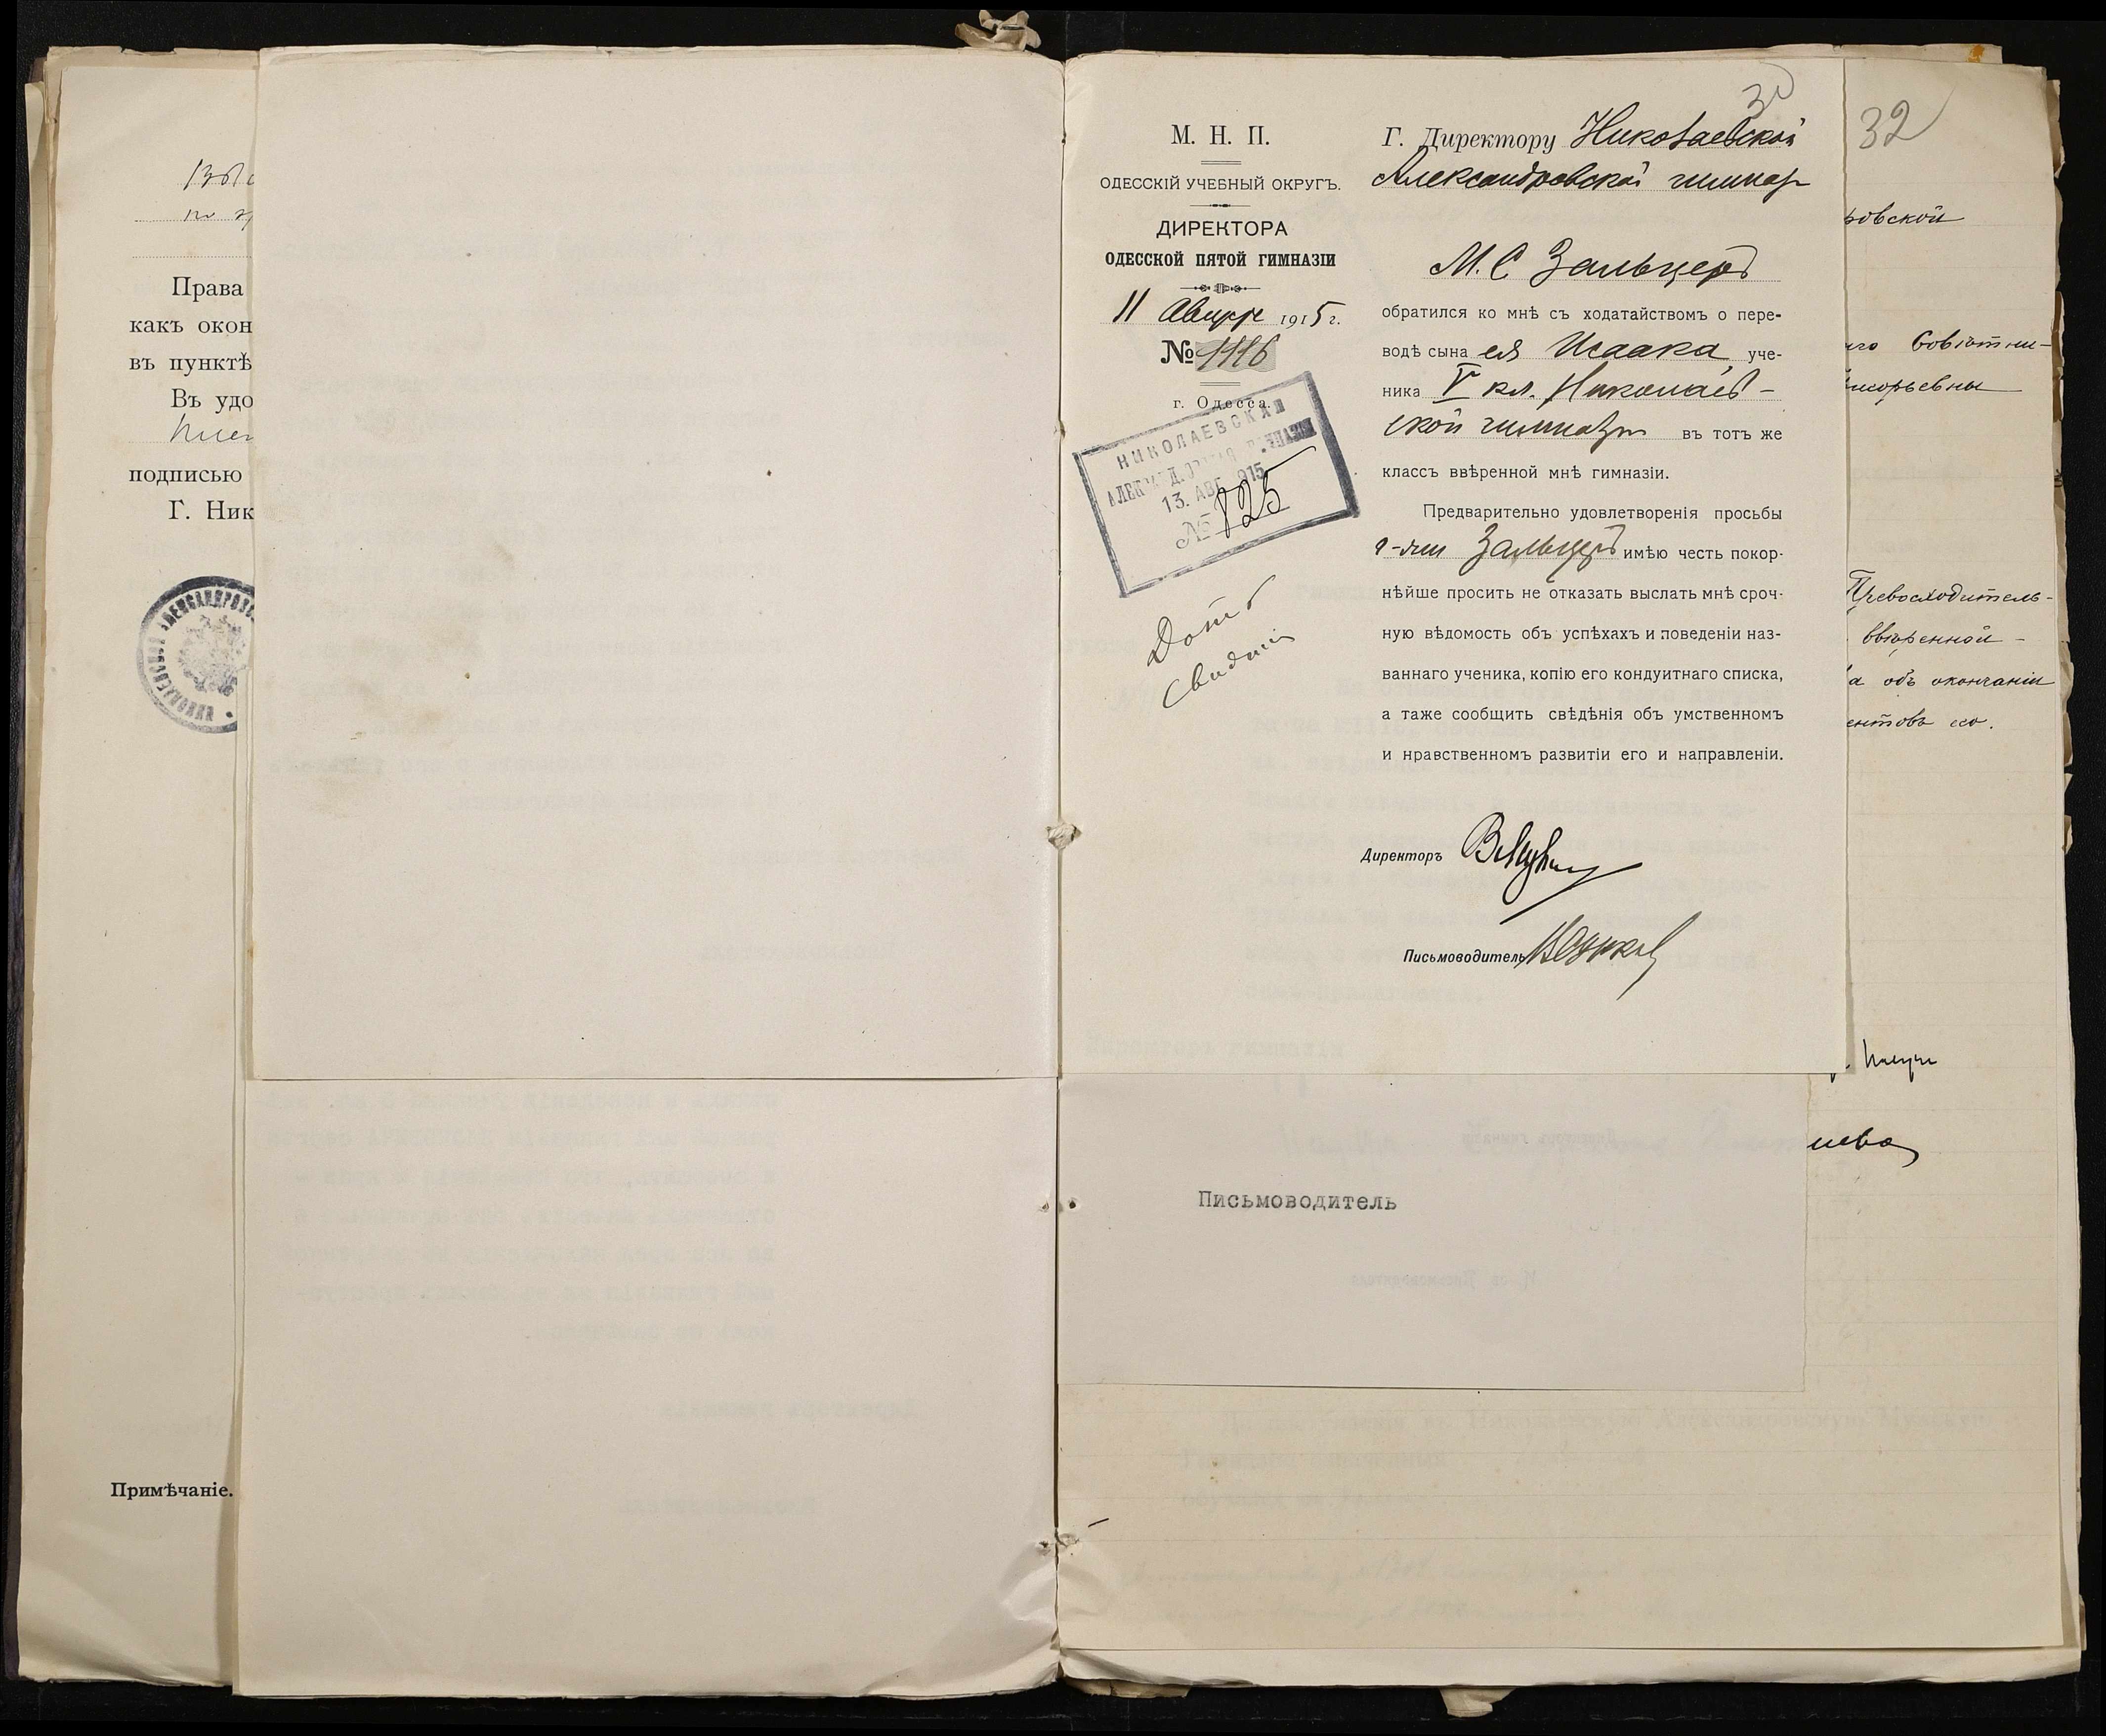 Права
какъ окон
въ пунктѣ
Въ удо
подписью
Г. Ник
Примѣчаніе.
30
М. Н. П.
ОДЕССКІЙ УЧЕБНЫЙ ОКРУГЪ.
ДИРЕКТОРА
ОДЕССКОЙ ПЯТОЙ ГИМНАЗІИ
11 Августа 1915 г.
№ 1116
г. Одесса.
НИКОЛАЕВСКАЯ
АЛЕКСАНДРОВСКАЯ ГИМНАЗІЯ
13. АВГ. 1915
№ 825
Г. Директору Николаевской
Александровской гимназ
М. С Зальцеръ
обратился ко мнѣ съ ходатайствомъ о пере-
водѣ сына ея Исаака уче-
ника V кл. Николаев-
ской гимназіи въ тотъ же
классъ ввѣренной мнѣ гимназіи.
Предварительно удовлетворенія просьбы
г-жи Зальцеръ имѣю честь покор-
нѣйше просить не отказать выслать мнѣ сроч-
ную вѣдомость объ успѣхахъ и поведеніи наз-
ваннаго ученика, копію его кондуитнаго списка,
а таже сообщить свѣдѣнія объ умственномъ
и нравственномъ развитіи его и направленіи.
Директоръ
Письмоводитель
Письмоводитель
32
ровской
Превосходитель-
ввѣренной
а объ окончаніи
ентовъ его.